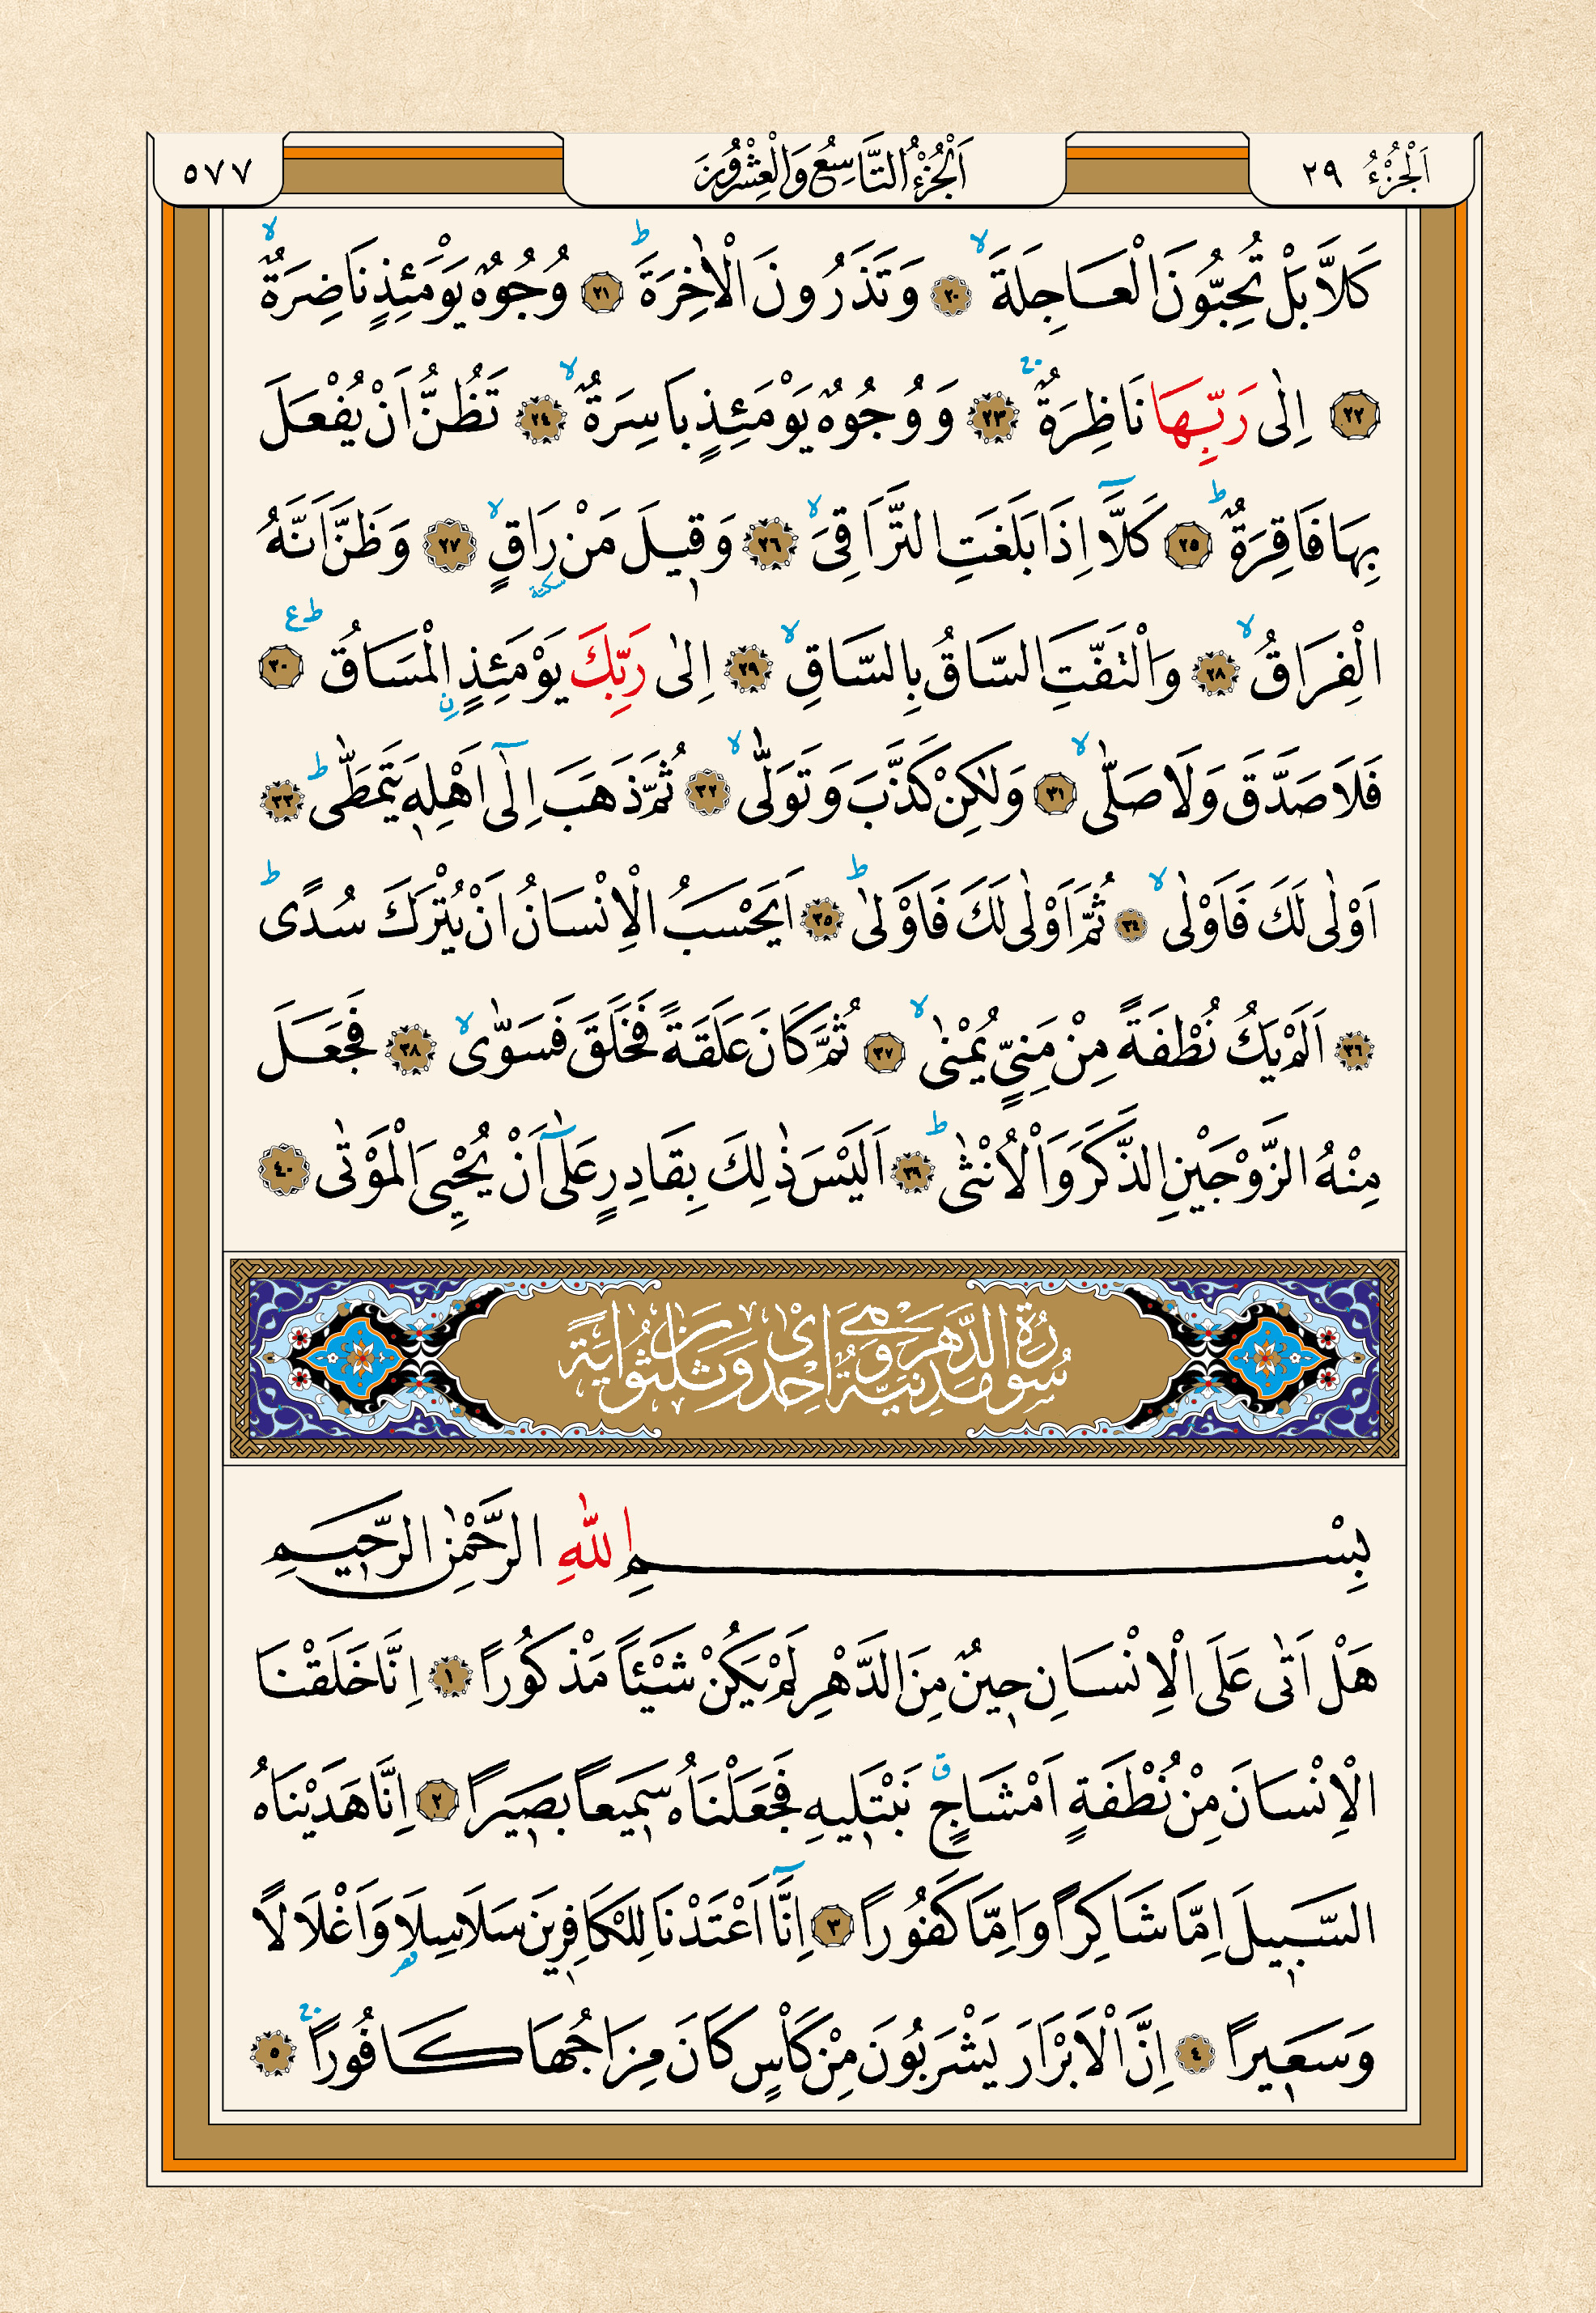 اَلْجُزْءُ ٢٩
اَلْجُزْءُ التَّاسِعُ وَالْعِشْرُونَ
٥٧٧
كَلَّا بَلْ تُحِبُّونَ الْعَاجِلَةَۙ ﴿٢٠﴾ وَتَذَرُونَ الْاٰخِرَةَۜ ﴿٢١﴾ وُجُوهٌ يَوْمَئِذٍ نَاضِرَةٌۙ
﴿٢٢﴾ اِلٰى رَبِّهَا نَاظِرَةٌۚ ﴿٢٣﴾ وَوُجُوهٌ يَوْمَئِذٍ بَاسِرَةٌۙ ﴿٢٤﴾ تَظُنُّ اَنْ يُفْعَلَ
بِهَا فَاقِرَةٌۜ ﴿٢٥﴾ كَلَّٓا اِذَا بَلَغَتِ التَّرَاقِيَۙ ﴿٢٦﴾ وَق۪يلَ مَنْ رَاقٍۙ سكتة ﴿٢٧﴾ وَظَنَّ اَنَّهُ
الْفِرَاقُۙ ﴿٢٨﴾ وَالْتَفَّتِ السَّاقُ بِالسَّاقِۙ ﴿٢٩﴾ اِلٰى رَبِّكَ يَوْمَئِذٍۨ الْمَسَاقُۜ ع ﴿٣٠﴾
فَلَا صَدَّقَ وَلَا صَلّٰىۙ ﴿٣١﴾ وَلٰكِنْ كَذَّبَ وَتَوَلّٰىۙ ﴿٣٢﴾ ثُمَّ ذَهَبَ اِلٰٓى اَهْلِه۪ يَتَمَطّٰىۜ ﴿٣٣﴾
اَوْلٰى لَكَ فَاَوْلٰىۙ ﴿٣٤﴾ ثُمَّ اَوْلٰى لَكَ فَاَوْلٰىۜ ﴿٣٥﴾ اَيَحْسَبُ الْاِنْسَانُ اَنْ يُتْرَكَ سُدًىۜ
﴿٣٦﴾ اَلَمْ يَكُ نُطْفَةً مِنْ مَنِيٍّ يُمْنٰىۙ ﴿٣٧﴾ ثُمَّ كَانَ عَلَقَةً فَخَلَقَ فَسَوّٰىۙ ﴿٣٨﴾ فَجَعَلَ
مِنْهُ الزَّوْجَيْنِ الذَّكَرَ وَالْاُنْثٰىۜ ﴿٣٩﴾ اَلَيْسَ ذٰلِكَ بِقَادِرٍ عَلٰٓى اَنْ يُحْيِيَ الْمَوْتٰى ﴿٤٠﴾
سُورَةُ الدَّهْرِ مَدَنِيَّةٌ وَهِيَ اِحْدٰى وَثَلٰثُونَ اٰيَةً
بِسْمِ اللّٰهِ الرَّحْمٰنِ الرَّح۪يمِ
هَلْ اَتٰى عَلَى الْاِنْسَانِ ح۪ينٌ مِنَ الدَّهْرِ لَمْ يَكُنْ شَيْـًٔا مَذْكُورًا ﴿١﴾ اِنَّا خَلَقْنَا
الْاِنْسَانَ مِنْ نُطْفَةٍ اَمْشَاجٍۗ نَبْتَل۪يهِ فَجَعَلْنَاهُ سَم۪يعًا بَص۪يرًا ﴿٢﴾ اِنَّا هَدَيْنَاهُ
السَّب۪يلَ اِمَّا شَاكِرًا وَاِمَّا كَفُورًا ﴿٣﴾ اِنَّٓا اَعْتَدْنَا لِلْكَافِر۪ينَ سَلَاسِلَا۬ وَاَغْلَالًا
وَسَع۪يرًا ﴿٤﴾ اِنَّ الْاَبْرَارَ يَشْرَبُونَ مِنْ كَاْسٍ كَانَ مِزَاجُهَا كَافُورًاۚ ﴿٥﴾